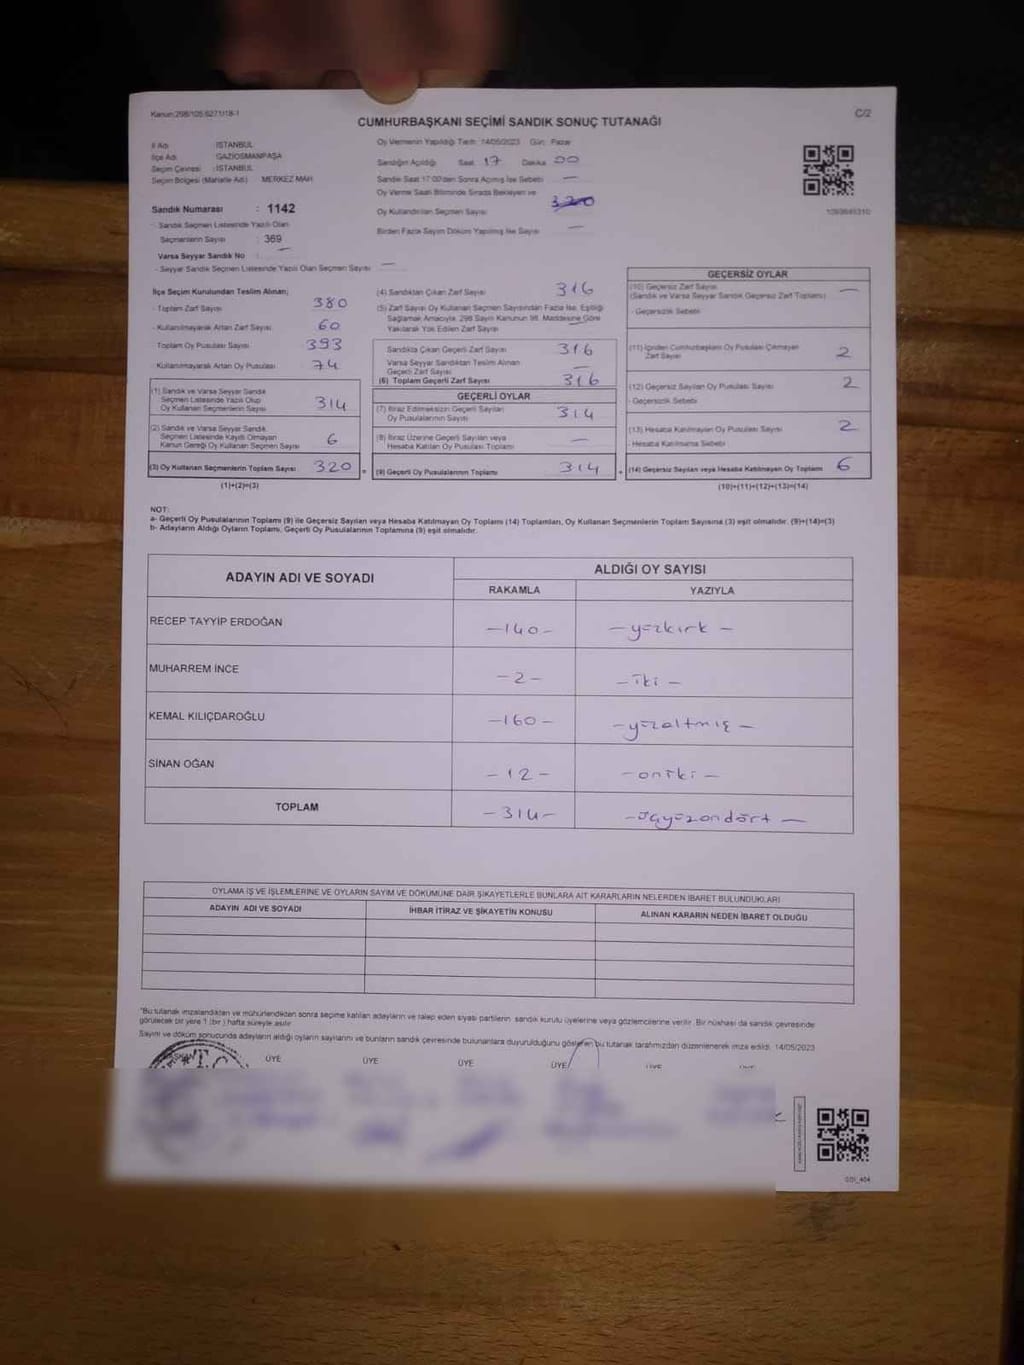 Kanun:298/105 6271/18-1
C/2
CUMHURBAŞKANI SEÇİMİ SANDIK SONUÇ TUTANAĞI
İl Adı : İSTANBUL
İlçe Adı GAZİOSMANPAŞA
Seçim Çevresi : İSTANBUL
Seçim Bölgesi (Mahalle Adı) MERKEZ MAH
Sandık Numarası : 1142
- Sandık Seçmen Listesinde Yazılı Olan
Seçmenlerin Sayısı : 369
Varsa Seyyar Sandık No —
- Seyyar Sandık Seçmen Listesinde Yazılı Olan Seçmen Sayısı —
Oy Vermenin Yapıldığı Tarih 14/05/2023 Gün: Pazar
Sandığın Açıldığı Saat 17 Dakika 00
Sandık Saat 17:00'den Sonra Açılmış İse Sebebi —
Oy Verme Saati Bitiminde Sırada Bekleyen ve
Oy Kullandırılan Seçmen Sayısı
Birden Fazla Sayım Döküm Yapılmış İse Sayısı —
İlçe Seçim Kurulundan Teslim Alınan;
- Toplam Zarf Sayısı 380
- Kullanılmayarak Artan Zarf Sayısı 60
Toplam Oy Pusulası Sayısı 393
Kullanılmayarak Artan Oy Pusulası 74
(1) Sandık ve Varsa Seyyar Sandık
Seçmen Listesinde Yazılı Olup
Oy Kullanan Seçmenlerin Sayısı 314
(2) Sandık ve Varsa Seyyar Sandık
Seçmen Listesinde Kayıtlı Olmayan
Kanun Gereği Oy Kullanan Seçmen Sayısı 6
(3) Oy Kullanan Seçmenlerin Toplam Sayısı 320
(1)+(2)=(3)
(4) Sandıktan Çıkan Zarf Sayısı 316
(5) Zarf Sayısı Oy Kullanan Seçmen Sayısından Fazla İse, Eşitliği
Sağlamak Amacıyla, 298 Sayılı Kanunun 98. Maddesine Göre
Yakılarak Yok Edilen Zarf Sayısı
Sandıkta Çıkan Geçerli Zarf Sayısı 316
Varsa Seyyar Sandıktan Teslim Alınan
Geçerli Zarf Sayısı —
(6) Toplam Geçerli Zarf Sayısı 316
GEÇERLİ OYLAR
(7) İtiraz Edilmeksizin Geçerli Sayılan
Oy Pusulalarının Sayısı 314
(8) İtiraz Üzerine Geçerli Sayılan veya
Hesaba Katılan Oy Pusulası Toplamı —
(9) Geçerli Oy Pusulalarının Toplamı 314
GEÇERSİZ OYLAR
(10) Geçersiz Zarf Sayısı —
(Sandık ve Varsa Seyyar Sandık Geçersiz Zarf Toplamı)
- Geçersizlik Sebebi
(11) İçinden Cumhurbaşkanı Oy Pusulası Çıkmayan
Zarf Sayısı 2
(12) Geçersiz Sayılan Oy Pusulası Sayısı 2
- Geçersizlik Sebebi
(13) Hesaba Katılmayan Oy Pusulası Sayısı 2
- Hesaba Katılmama Sebebi
(14) Geçersiz Sayılan veya Hesaba Katılmayan Oy Toplamı 6
(10)+(11)+(12)+(13)=(14)
NOT:
a- Geçerli Oy Pusulalarının Toplamı (9) ile Geçersiz Sayılan veya Hesaba Katılmayan Oy Toplamı (14) Toplamları, Oy Kullanan Seçmenlerin Toplam Sayısına (3) eşit olmalıdır. (9)+(14)=(3)
b- Adayların Aldığı Oyların Toplamı, Geçerli Oy Pusulalarının Toplamına (9) eşit olmalıdır.
ADAYIN ADI VE SOYADI ALDIĞI OY SAYISI
RAKAMLA YAZIYLA
RECEP TAYYİP ERDOĞAN -140- -yüzkırk-
MUHARREM İNCE -2- -iki-
KEMAL KILIÇDAROĞLU -160- -yüzaltmış-
SİNAN OĞAN -12- -oniki-
TOPLAM -314- -üçyüzondört-
OYLAMA İŞ VE İŞLEMLERİNE VE OYLARIN SAYIM VE DÖKÜMÜNE DAİR ŞİKAYETLERLE BUNLARA AİT KARARLARIN NELERDEN İBARET BULUNDUKLARI
ADAYIN ADI VE SOYADI İHBAR İTİRAZ VE ŞİKAYETİN KONUSU ALINAN KARARIN NEDEN İBARET OLDUĞU
"Bu tutanak imzalandıktan ve mühürlendikten sonra seçime katılan adayların ve talep eden siyasi partilerin sandık kurulu üyelerine veya gözlemcilerine verilir. Bir nüshası da sandık çevresinde
görülecek bir yere 1 (bir) hafta süreyle asılır.
Sayım ve döküm sonucunda adayların aldığı oyların sayılarını ve bunların sandık çevresinde bulunanlara duyurulduğunu gösteren bu tutanak tarafımızdan düzenlenerek imza edildi. 14/05/2023
BAŞKAN ÜYE ÜYE ÜYE ÜYE ÜYE
T.C.